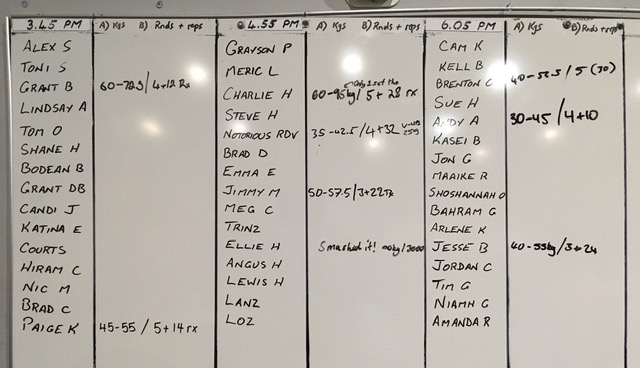 3.45 PM A) Kgs B) Rnds + reps
ALEX S
TONI S
GRANT B 60-72.5/4+12 Rx
LINDSAY A
TOM O
SHANE H
BODEAN B
GRANT DB
CANDI J
KATINA E
COURTS
HIRAM C
NIC M
BRAD C
PAIGE K 45-55 / 5+14 rx
4.55 PM A) Kgs B) Rnds + reps
GRAYSON P
MERIC L
only 1 set tho
CHARLIE H 60-95kg/ 5+28 rx
STEVE H
NOTORIOUS RDV 35-42.5/4+32
BRAD D
EMMA E
JIMMY M 50-57.5/3+22rx
MEG C
TRINZ
ELLIE H Smashed it! /3000
ANGUS H
LEWIS H
LANZ
LOZ
6.05 PM A) Kgs B) Rnds + reps
CAM K
KELL B
BRENTON C 40-52.5/5 (30)
SUE H
ANDY A 30-45/4+10
KASEI B
JON G
MAAIKE R
SHOSHANNAH O
BAHRAM G
ARLENE K
JESSE B 40-55kg/3+24
JORDAN C
TIM G
NIAMH G
AMANDA R